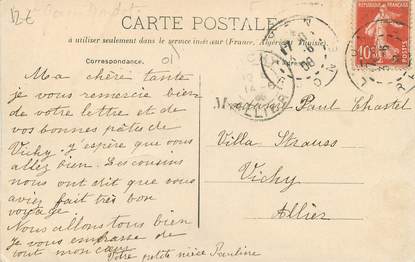 12€
CARTE POSTALE
à utiliser seulement dans le service intérieur (France, Algérie et Tunisie)
Correspondance.
01
Ma chère tante
je vous remercie bien
de votre lettre et de
vos bonnes pâtes de
Vichy. J'espère que vous
allez bien. Les cousins
nous ont dit que vous
aviez fait très bon
voyage.
Nous allons tous bien
Je vous embrasse de
tout mon cœur
Votre petite nièce Pauline
10
ALLIER
Paul Chastel
Villa Strauss
Vichy
Allier